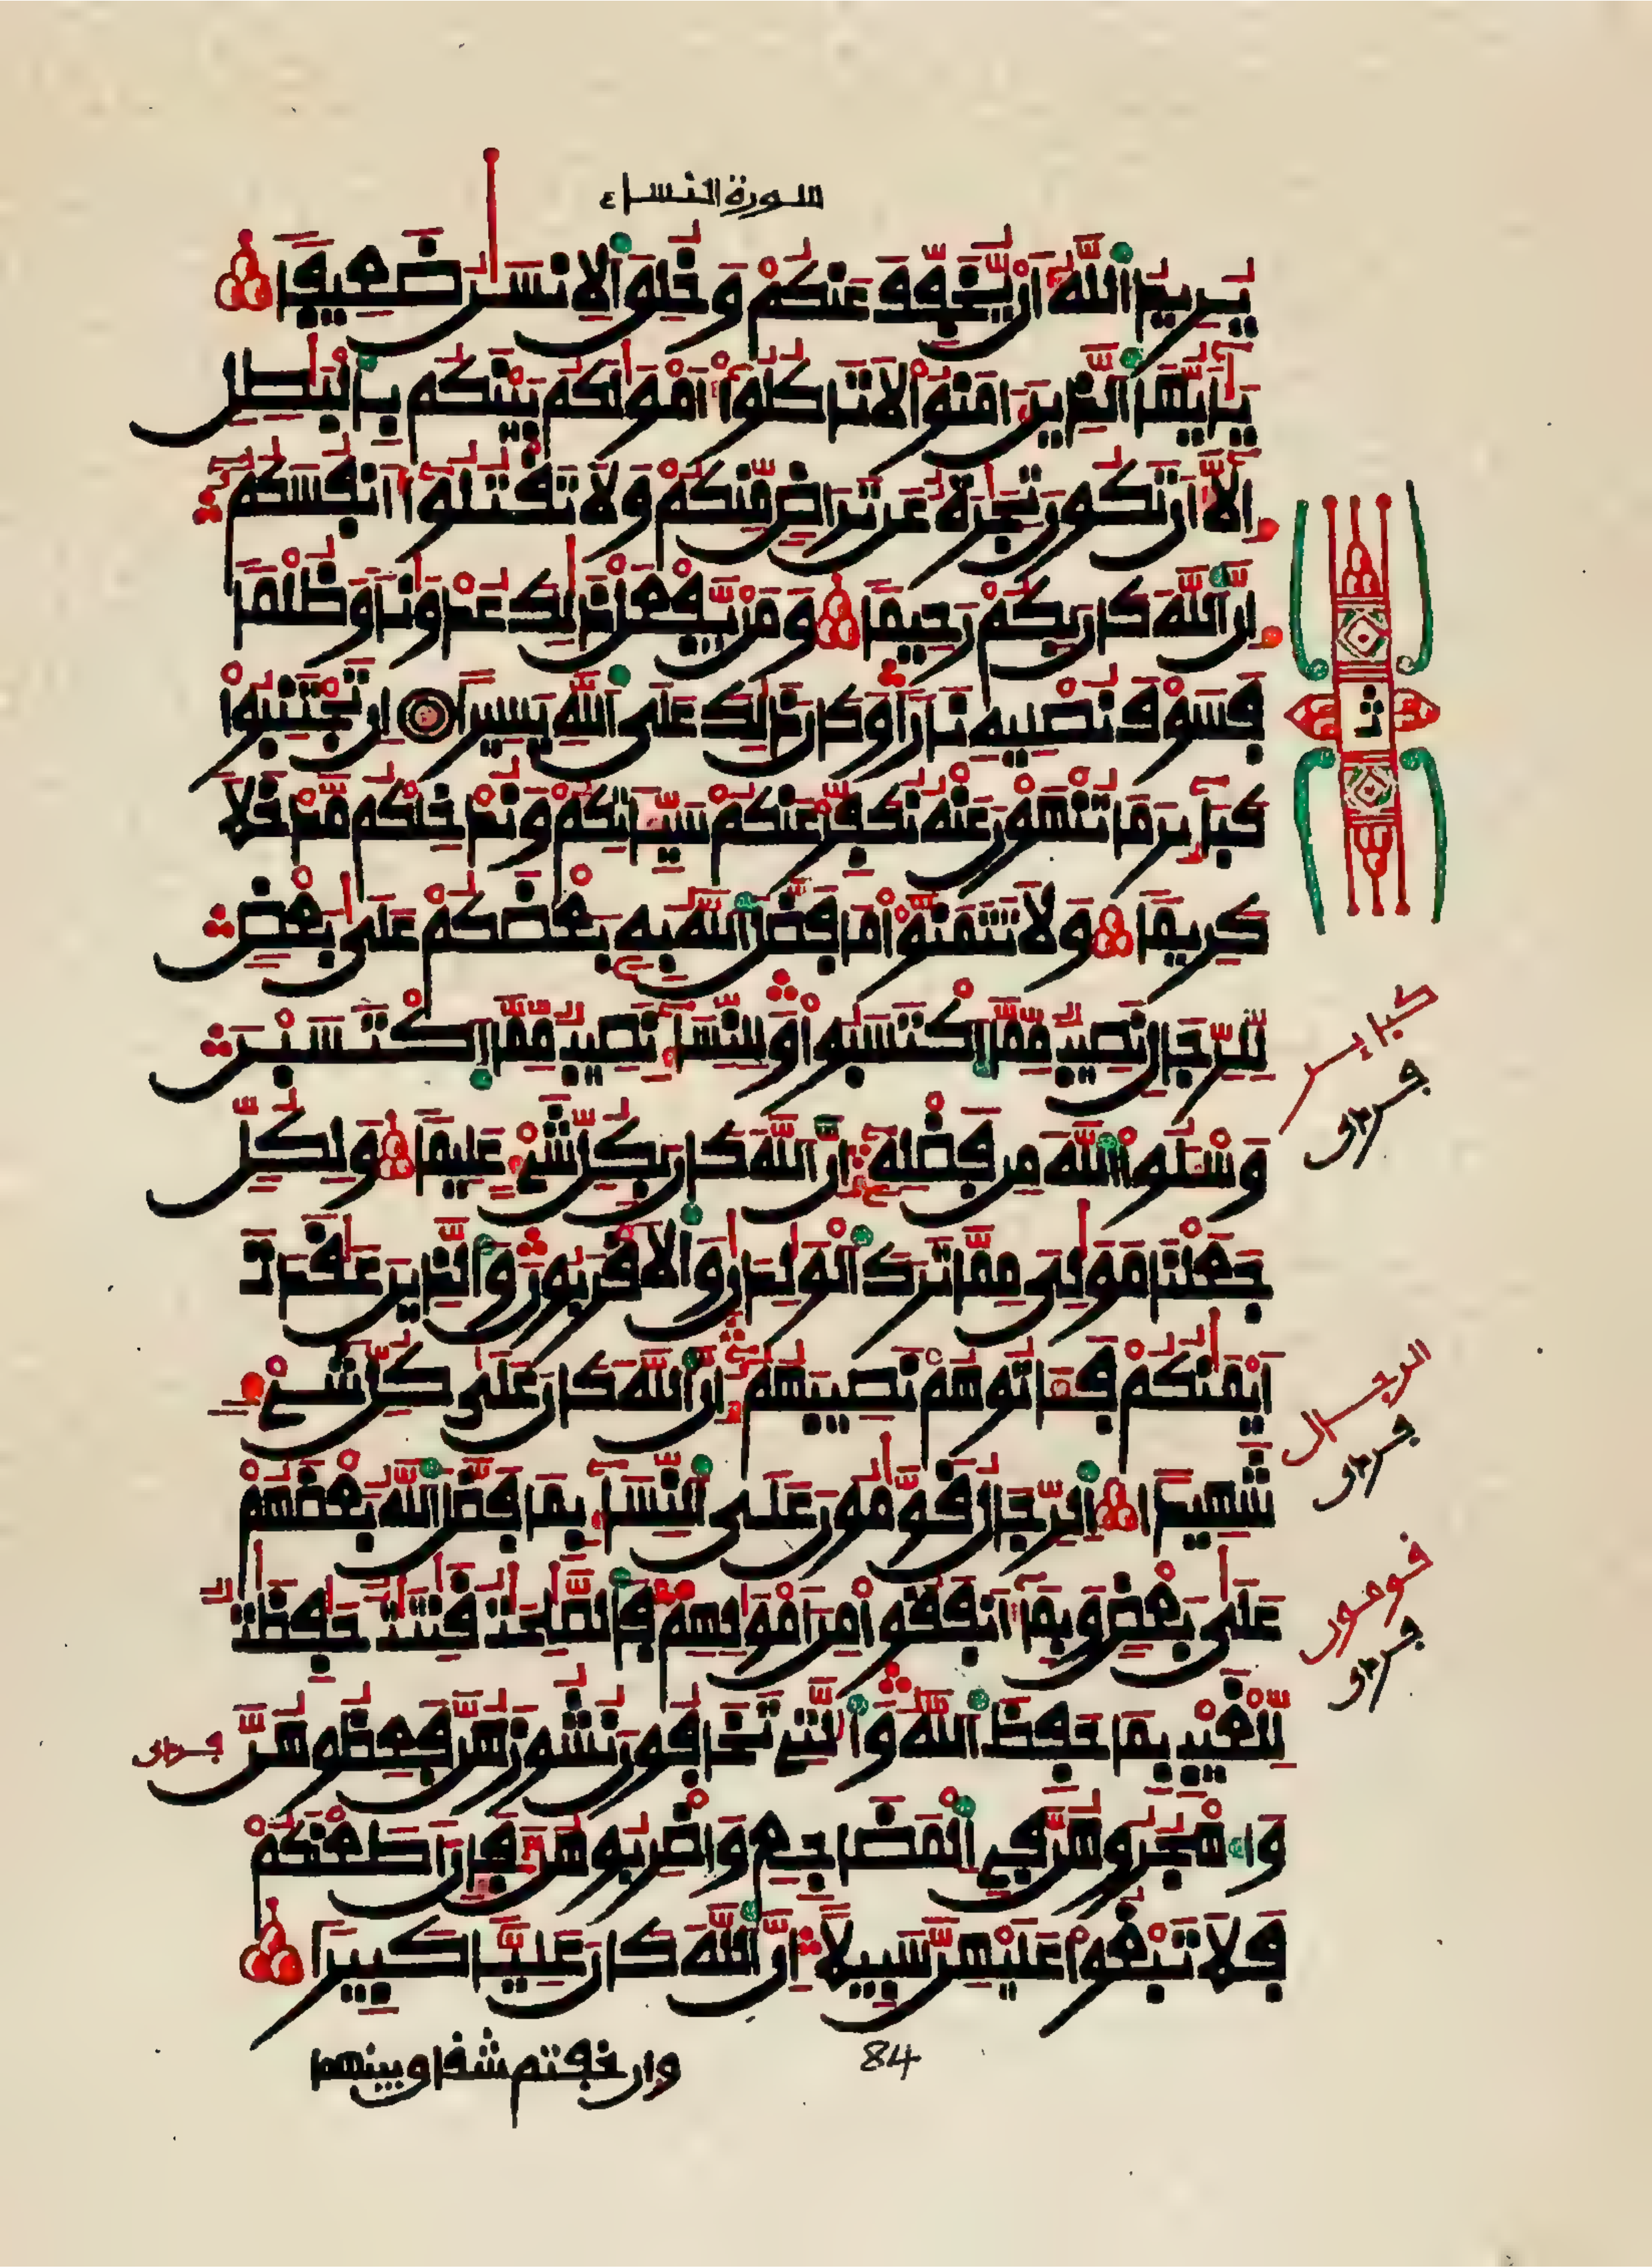 سورة النساء
يُرِيدُ اللَّهُ أَنْ يُخَفِّفَ عَنكُمْ وَخُلِقَ الِانسَٰنُ ضَعِيفًا
يَٰأَيُّهَا الذِينَ ءَامَنُوا لَا تَاكُلُوا أَمْوَٰلَكُم بَيْنَكُم بِالْبَٰطِلِ
إِلَّا أَن تَكُونَ تِجَٰرَةٌ عَن تَرَاضٍ مِّنكُمْ وَلَا تَقْتُلُوا أَنفُسَكُمْ
إِنَّ اللَّهَ كَانَ بِكُمْ رَحِيمًا وَمَنْ يَّفْعَلْ ذَٰلِكَ عُدْوَٰنًا وَظُلْمًا
فَسَوْفَ نُصْلِيهِ نَارًا وَكَانَ ذَٰلِكَ عَلَى اللَّهِ يَسِيرًا إِن تَجْتَنِبُوا
كَبَائِرَ مَا تُنْهَوْنَ عَنْهُ نُكَفِّرْ عَنكُمْ سَيِّئَاتِكُمْ وَنُدْخِلْكُم مَّدْخَلًا
كَرِيمًا وَلَا تَتَمَنَّوْا مَا فَضَّلَ اللَّهُ بِهِ بَعْضَكُمْ عَلَىٰ بَعْضٍ
لِّلرِّجَالِ نَصِيبٌ مِّمَّا اكْتَسَبُوا وَلِلنِّسَاءِ نَصِيبٌ مِّمَّا اكْتَسَبْنَ
وَسْـَٔلُوا اللَّهَ مِن فَضْلِهِ إِنَّ اللَّهَ كَانَ بِكُلِّ شَيْءٍ عَلِيمًا وَلِكُلٍّ
جَعَلْنَا مَوَٰلِيَ مِمَّا تَرَكَ الْوَٰلِدَانِ وَالَاقْرَبُونَ وَالذِينَ عَٰقَدَتَ
اَيْمَٰنُكُمْ فَـَٔاتُوهُمْ نَصِيبَهُمْ إِنَّ اللَّهَ كَانَ عَلَىٰ كُلِّ شَيْءٍ
شَهِيدًا الرِّجَالُ قَوَّٰمُونَ عَلَى النِّسَاءِ بِمَا فَضَّلَ اللَّهُ بَعْضَهُمْ
عَلَىٰ بَعْضٍ وَبِمَا أَنفَقُوا مِنَ امْوَٰلِهِمْ فَالصَّٰلِحَٰتُ قَٰنِتَٰتٌ حَٰفِظَٰتٌ
لِّلْغَيْبِ بِمَا حَفِظَ اللَّهُ وَالتِي تَخَافُونَ نُشُوزَهُنَّ فَعِظُوهُنَّ
وَاهْجُرُوهُنَّ فِي الْمَضَاجِعِ وَاضْرِبُوهُنَّ فَإِنَ اطَعْنَكُمْ
فَلَا تَبْغُوا عَلَيْهِنَّ سَبِيلًا إِنَّ اللَّهَ كَانَ عَلِيًّا كَبِيرًا
84
وإن خفتم شقاق بينهما
ث
كبائر
الرجال
قومون